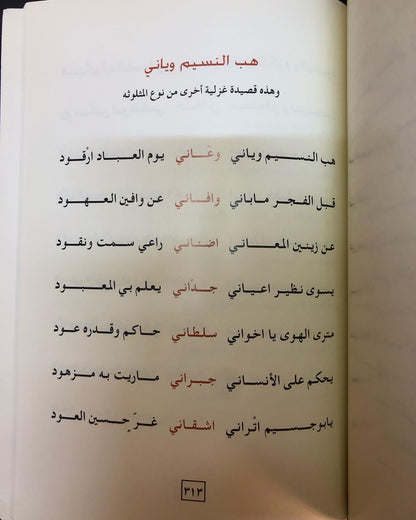 هب النسيم وياني
وهذه قصيدة غزلية أخرى من نوع المثلوثه
هب النسيم وياني وعَاني يوم العباد ارْقود
قبل الفجر ماباني وافاني عن وافين العهود
عن زينين المعاني اضناني راعي سمت ونقود
يسوى نظير اعياني جدّاني يعلم بي المعبود
مترى الهوى يا اخواني سلطاني حاكم وقدره عود
يحكم على الأنساني جبراني ماريت به مزهود
يابو جسيم اتْراني اشقاني غرّ حسين العود
٣١٣